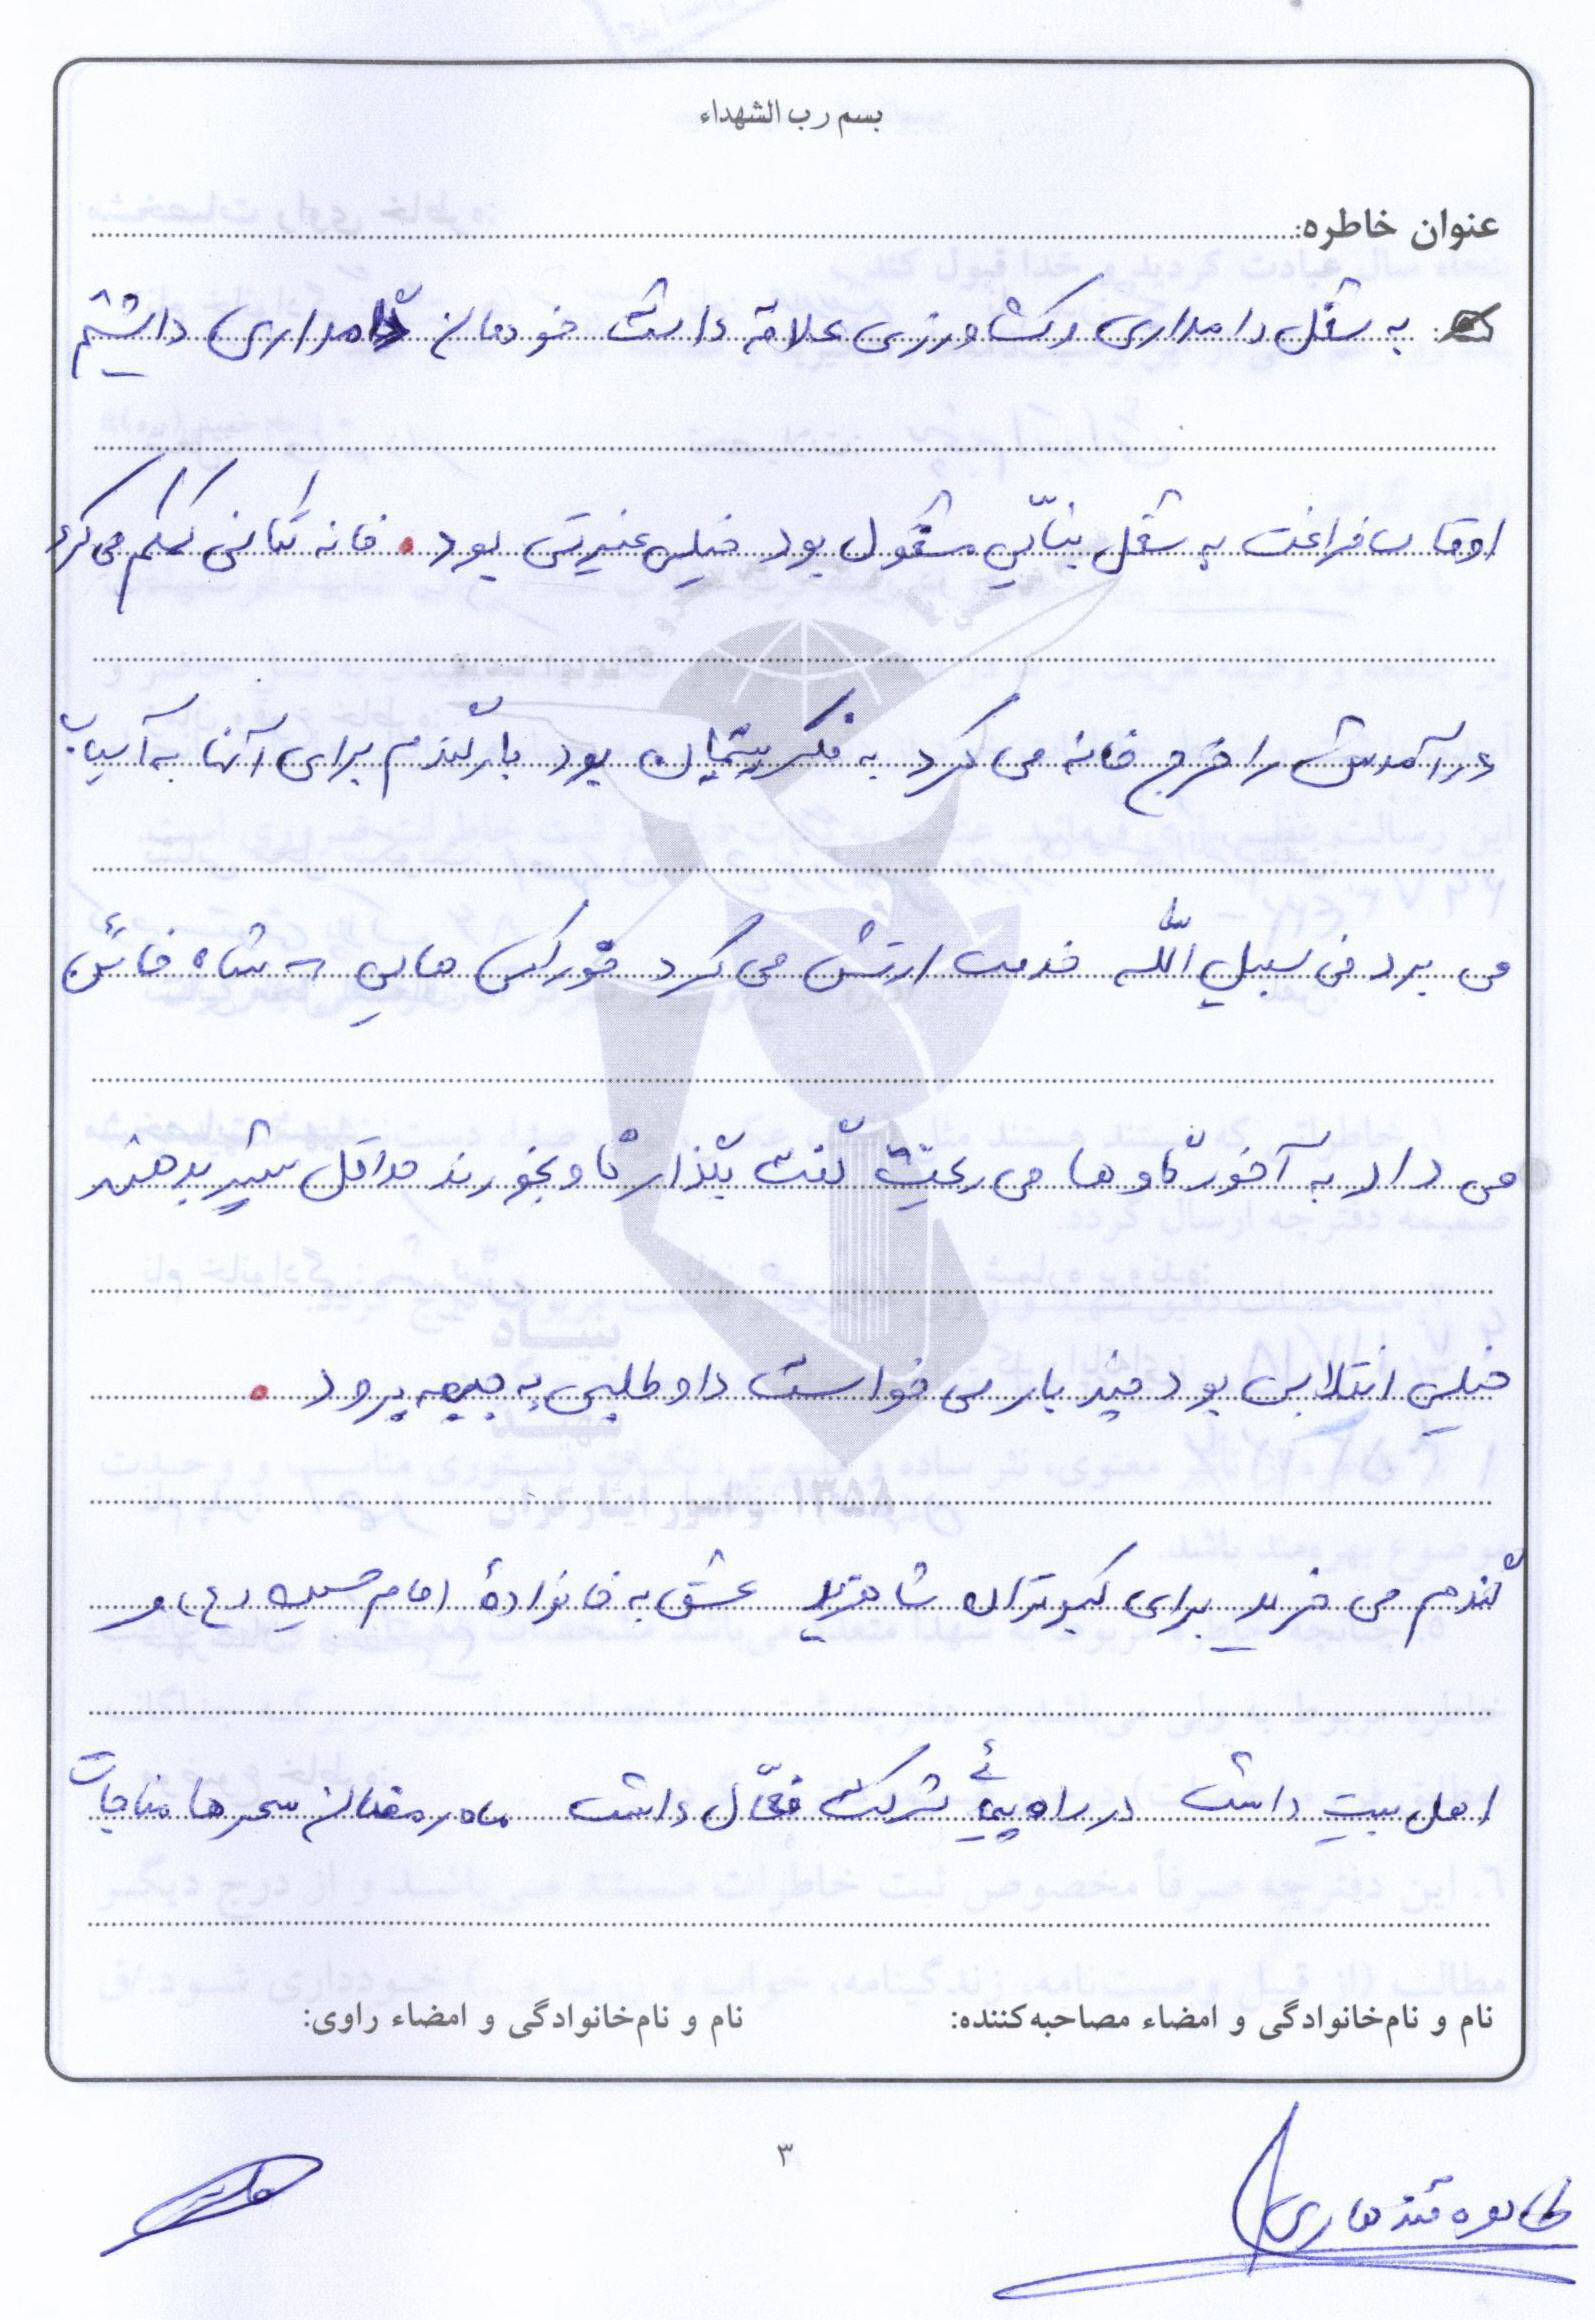 بسم رب الشهداء
عنوان خاطره:
به شغل دامداری و کشاورزی علاقه داشت خودمان گاومداری داشتیم
اوقات فراغت به شغل بنّایی مشغول بود خیلی غیرتی بود. خانه تکانی کمکم می کرد
درآمدش را خرج خانه می کرد به فکر یتیمان بود بار گندم برای آنها به آسیاب
می برد فی سبیل الله خدمت ارتش می کرد خوراکی هایی که شاه خائن
می داد به آخور گاوها می ریخت گفت بگذار گاو بخورند حداقل شیر بدهند
خیلی انقلابی بود چند بار می خواست داوطلبی به جبهه برود.
گندم می خرید برای کبوتران شاهزید عشق به خانوادهٔ امام حسین (ع) و
اهل بیت داشت در راه پیمائی شرکت فعّال داشت ماه رمضان سحرها مناجات
نام و نام‌خانوادگی و امضاء مصاحبه‌کننده:
نام و نام‌خانوادگی و امضاء راوی:
۳
طاهره قندهاری